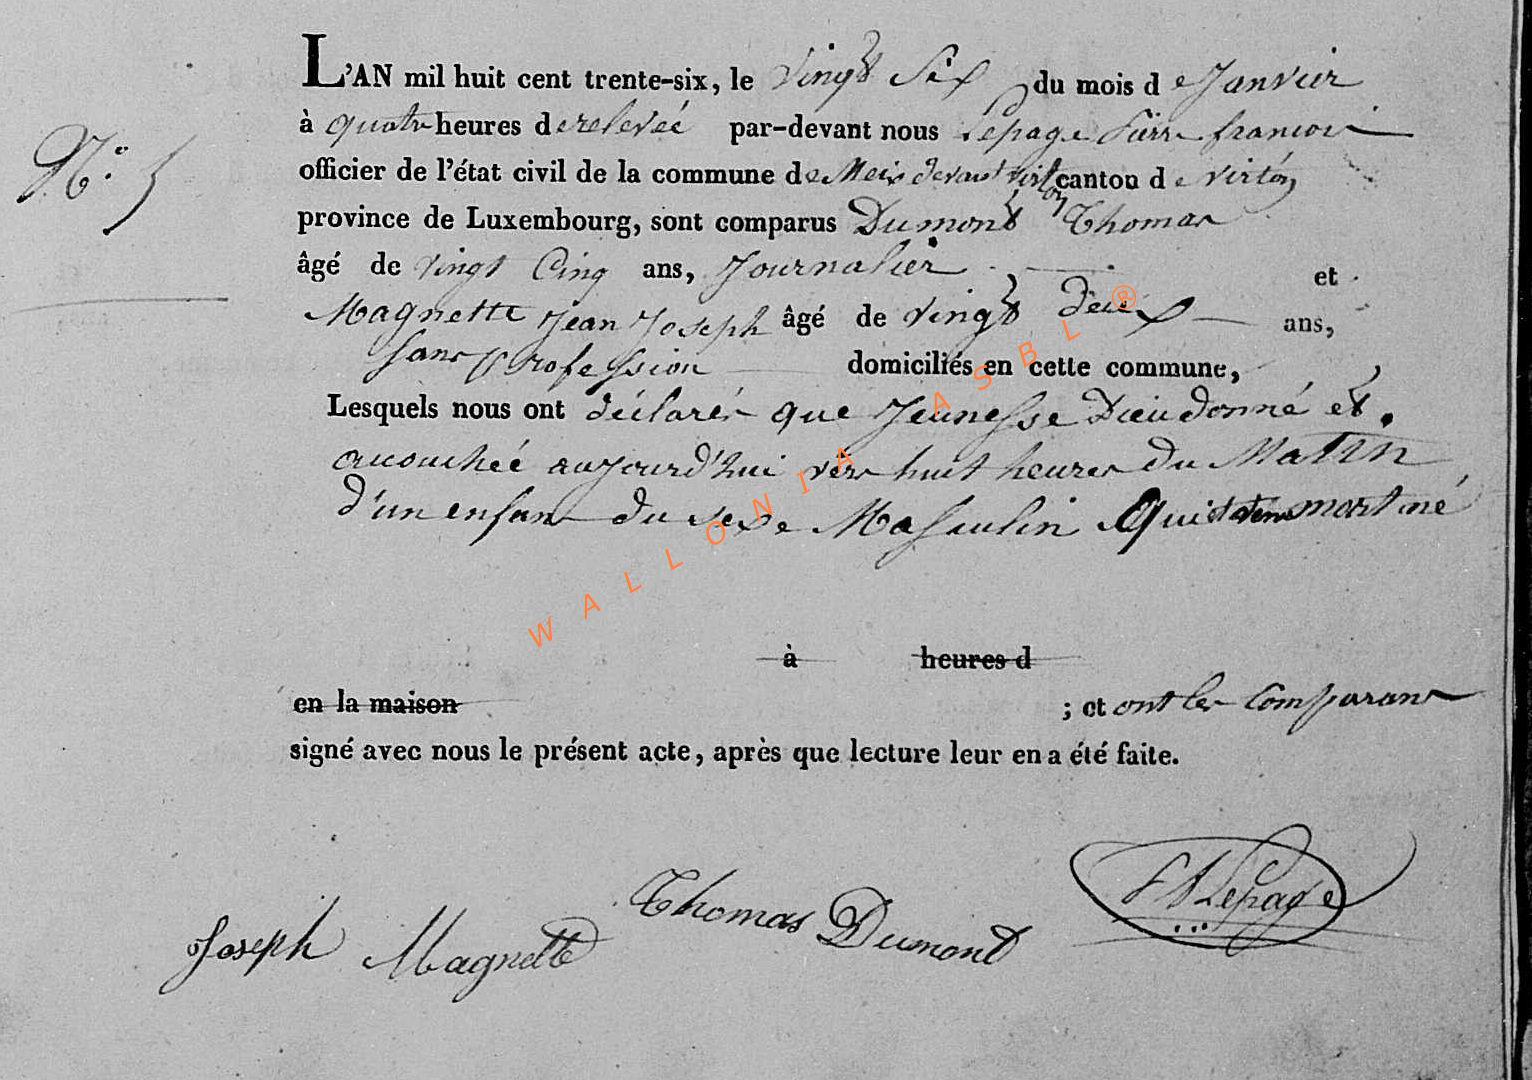 L'AN mil huit cent trente-six, le vingt Six du mois de Janvier
à quatre heures de relevée par-devant nous Lepage Pierre françois
N.° 5
officier de l'état civil de la commune de Meix devant virton canton de virton
province de Luxembourg, sont comparus Dumont Thomas
âgé de vingt Cinq ans, Journalier et
Magnette Jean Joseph âgé de vingt deux ans,
Sans profession domiciliés en cette commune,
Lesquels nous ont déclarés que Jeunesse Dieudonné et
acouchée aujourd'hui vers huit heures du Matin
d'un enfant du sexe Masculin Qui mort né
à heures d
en la maison ; et ont les Comparans
signé avec nous le présent acte, après que lecture leur en a été faite.
Joseph Magnette Thomas Dumont Lepage
WALLONIA ASBL ®